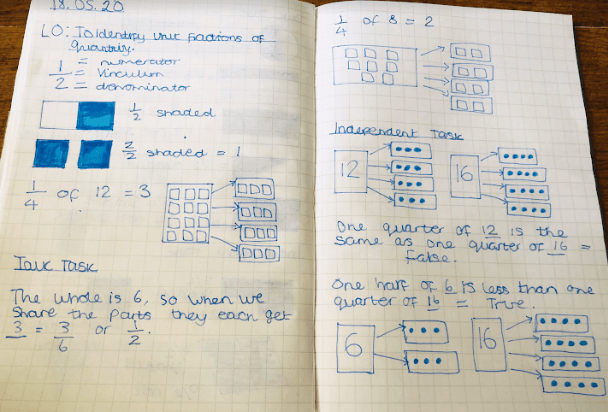 18.05.20
LO: To identify unit fractions of
quantity.
1 = numerator
— = Vinculum
2 = denominator
1/2 shaded
2/2 shaded = 1
1/4 of 12 = 3
Talk Task
The whole is 6, so when we
share the parts they each get
3 = 3/6 or 1/2.
1/4 of 8 = 2
Independent Task
12
16
One quarter of 12 is the
same as one quarter of 16 =
False.
One half of 6 is less than one
quarter of 16 = True.
6
16